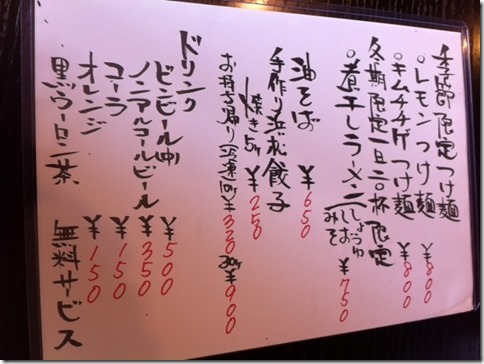 季節限定つけ麺
○レモンつけ麺 ¥800
○キムチチゲつけ麺 ¥800
冬期限定一日二〇杯限定
煮干しラーメン(しょうゆ しお みそ) ¥750
油そば ¥650
手作り浜松餃子
焼き5ケ ¥250
お持ち帰り(冷凍)10ケ ¥320 30ケ ¥900
ドリンク
ビンビール(中) ¥500
ノンアルコールビール ¥350
コーラ ¥150
オレンジ ¥150
黒ウーロン茶 無料サービス